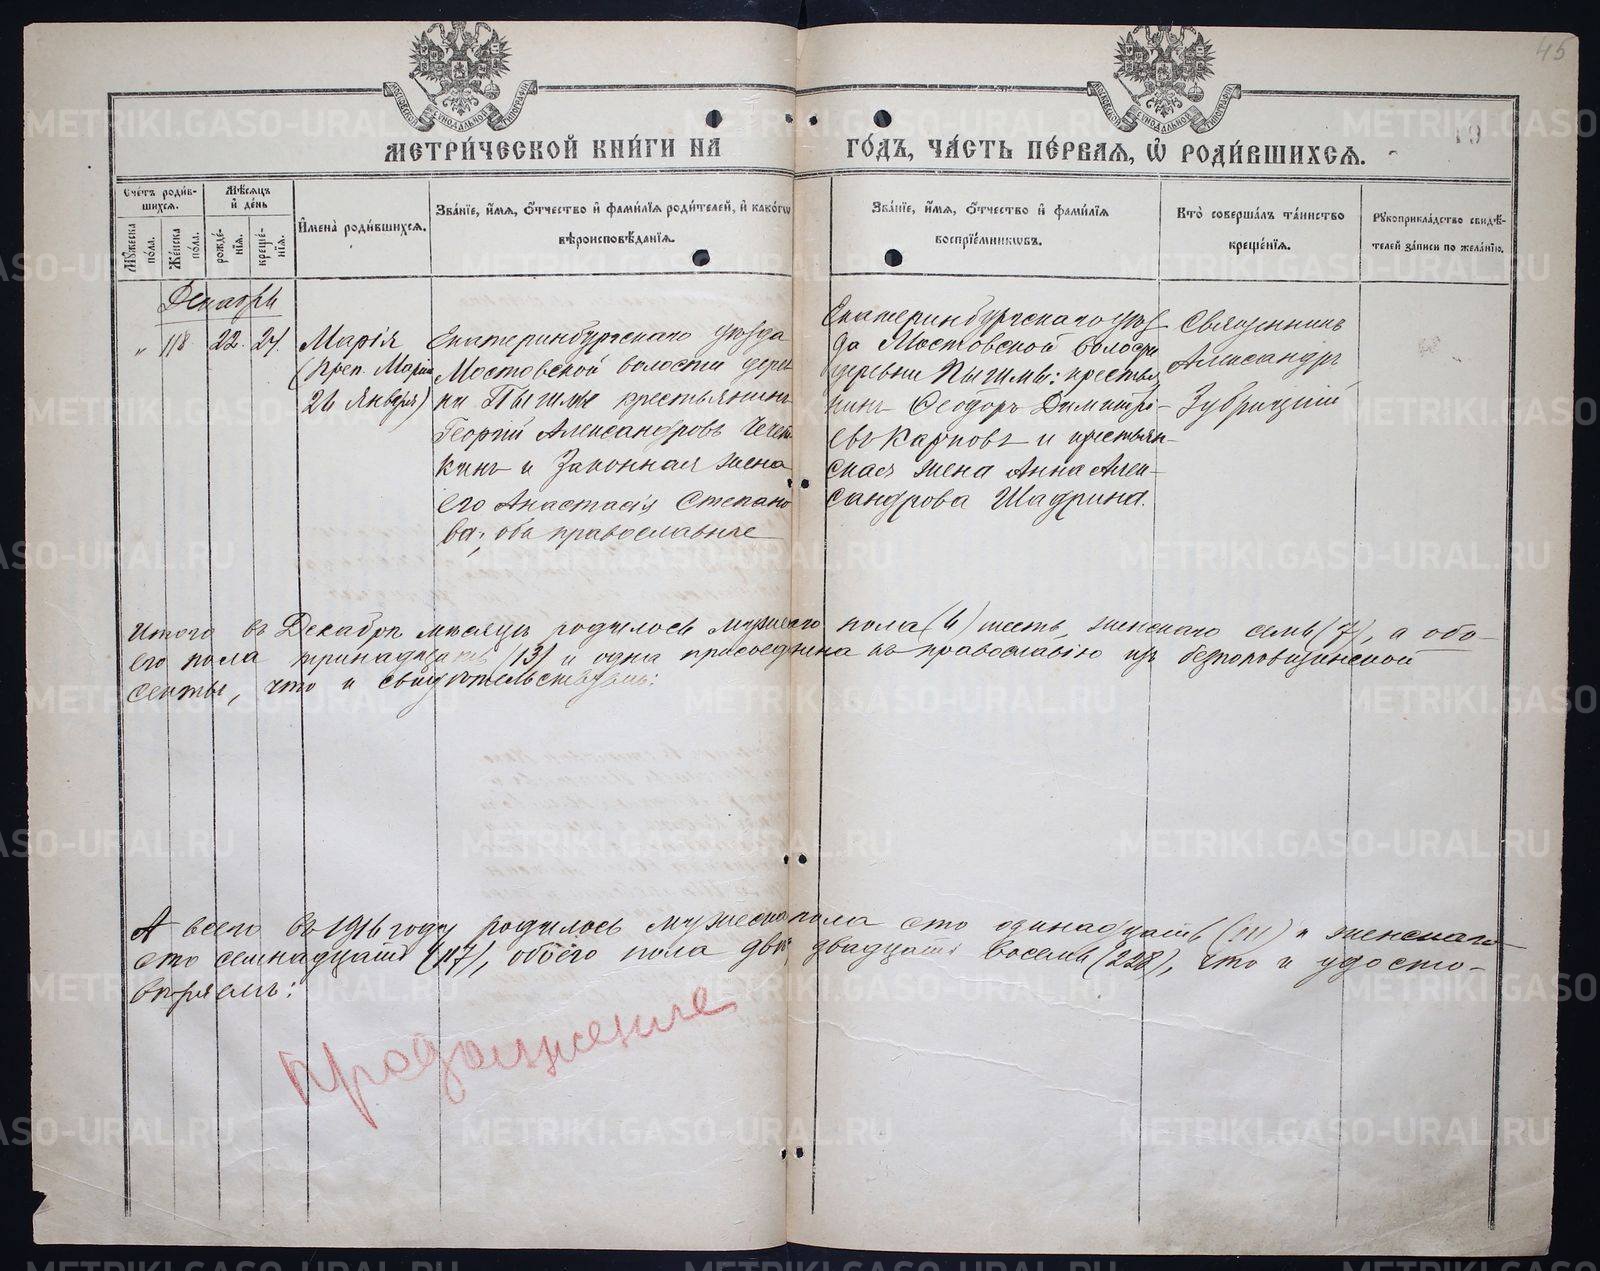 45
19
МЕТРИ́ЧЕСКОЙ КНИ́ГИ НА ГО́ДЪ, ЧА́СТЬ ПЕ́РВАЯ, Ѿ РОДИ́ВШИХСѦ.
Сче́тъ роди́в-
шихсѧ.
Мꙋ́жеска по́ла.
Же́нска по́ла.
Мѣ́сѧцъ и҆ де́нь
рожде́-
нїѧ.
креще́-
нїѧ.
И҆мена̀ роди́вшихсѧ.
Зва́нїе, и҆́мѧ, ѻ҆́тчество и҆ фами́лїѧ роди́телей, и҆ како́гѡ
вѣроисповѣ́данїѧ.
Зва́нїе, и҆́мѧ, ѻ҆́тчество и҆ фами́лїѧ
воспрїе́мникѡвъ.
Кто̀ соверша́лъ та́инство
креще́нїѧ.
Рꙋкоприкла́дство свидѣ́-
телей за́писи по жела́нїю.
Декабрь
„ 118 22. 27.
Марія
(преп. Марии
26 Января)
Екатеринбургскаго уѣзда
Мостовской волости дерев-
ни Пышмы крестьянинъ
Георгій Александровъ
и законная жена
его Анастасія Степано-
ва; оба православные
Екатеринбургскаго уѣз-
да Мостовской волости
деревни Пышмы: крестья-
нинъ Ѳеодоръ Димитрі-
евъ Карповъ и крестьян-
ская жена Анна Алек-
сандрова Шадрина.
Священникъ
Александръ
Зубрицкій
Итого въ Декабрѣ мѣсяцѣ родилось мужескаго пола (6) шесть, женскаго семь (7), а обо-
его пола тринадцать (13) и одна присоединена къ православію изъ безпоповщинской
секты, что и свидѣтельствуемъ:
А всего въ 1916 году родилось мужеска пола сто одинадцать (111) и женскаго
сто семнадцать (117), обоего пола двѣсти двадцать восемь (228), что и удосто-
вѣряемъ:
продолжение
METRIKI.GASO-URAL.RU